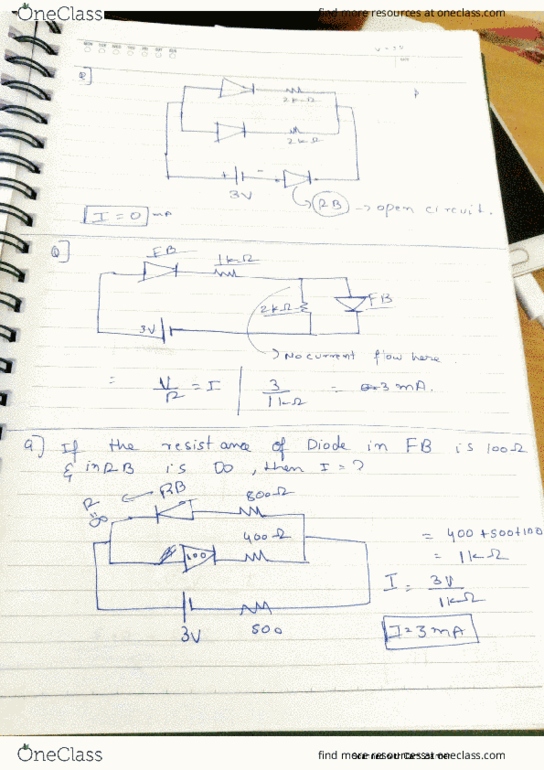 OneClass
find more resources at oneclass.com
Q]
2kΩ
2kΩ
+ -
3V
RB → open circuit.
I = 0 mA
Q]
FB
1kΩ
2kΩ
FB
3V
→ No current flow here.
= V/R = I | 3/1kΩ = 3 mA.
Q] If the resistance of Diode in FB is 100Ω
& in RB is ∞, then I = ?
R ← RB
∞
800Ω
400Ω
100
3V
500
= 400 + 500 + 100
= 1kΩ
I = 3V/1kΩ
I = 3 mA
OneClass
find more resources at oneclass.com